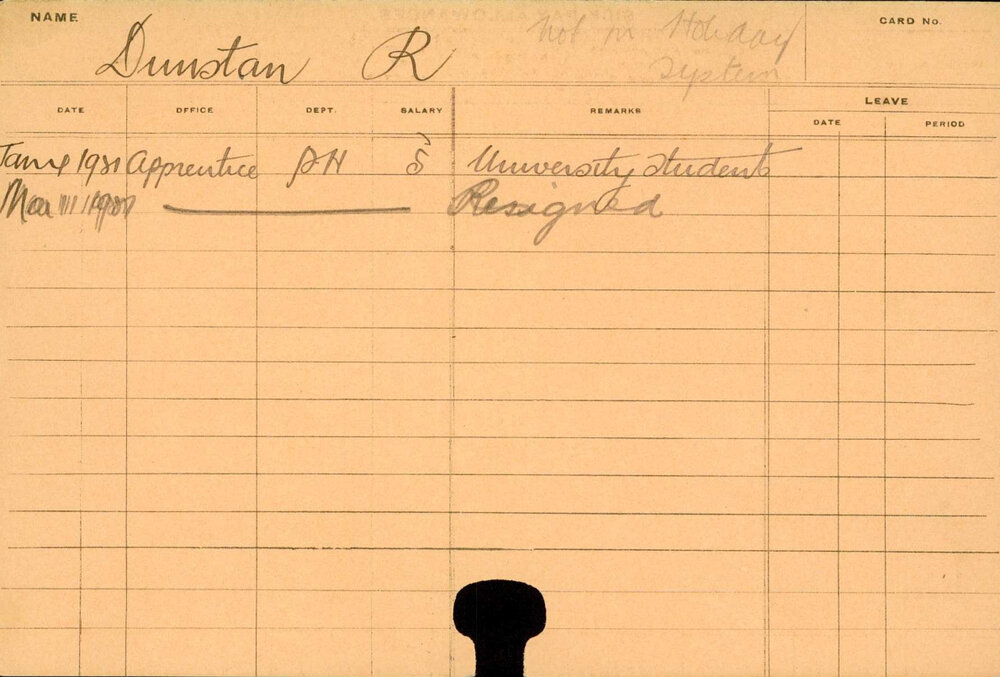 NAME
Dunstan R
Not in Holiday
System
CARD No.
DATE OFFICE DEPT. SALARY REMARKS LEAVE
DATE PERIOD
1931 Apprentice University Student
Resigned